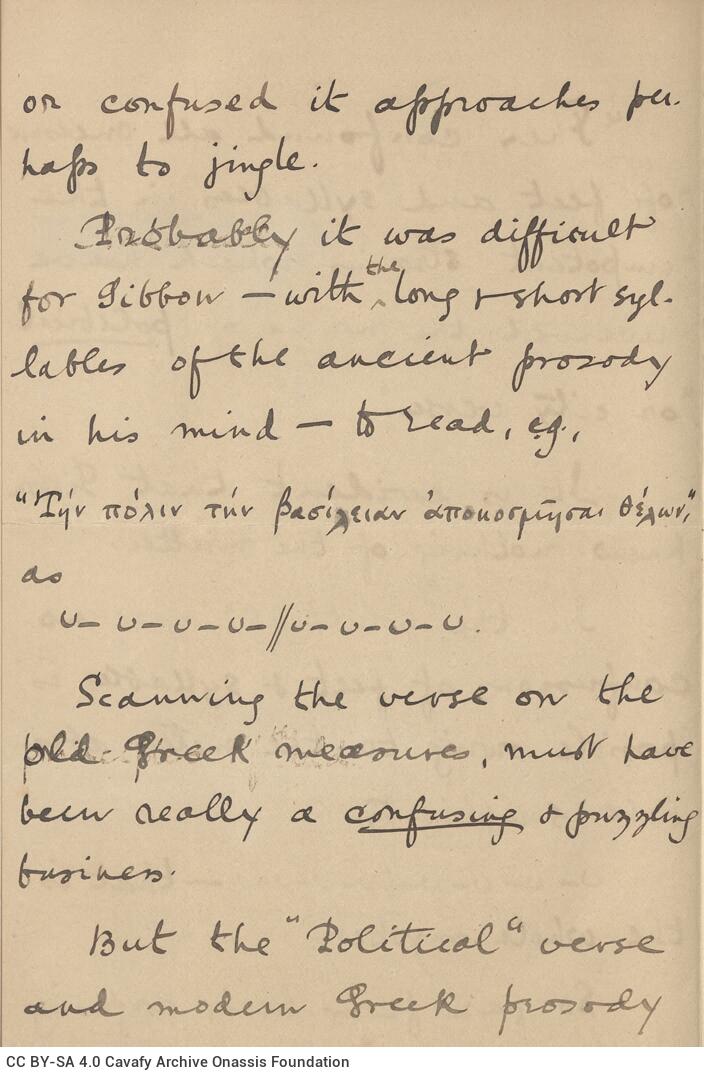 or confused it approaches per-
haps to jingle.
Probably it was difficult
for Gibbon — with the long & short syl-
lables of the ancient prosody
in his mind — to read, e.g.,
"Τήν πόλιν τήν βασίλειαν ἀποκοσμῆσαι θέλων,"
as
∪– ∪–∪–∪–//∪–∪–∪–∪.
Scanning the verse on the
old Greek measures, must have
been really a confusing & puzzling
business.
But the "Political" verse
and modern Greek prosody
CC BY-SA 4.0 Cavafy Archive Onassis Foundation